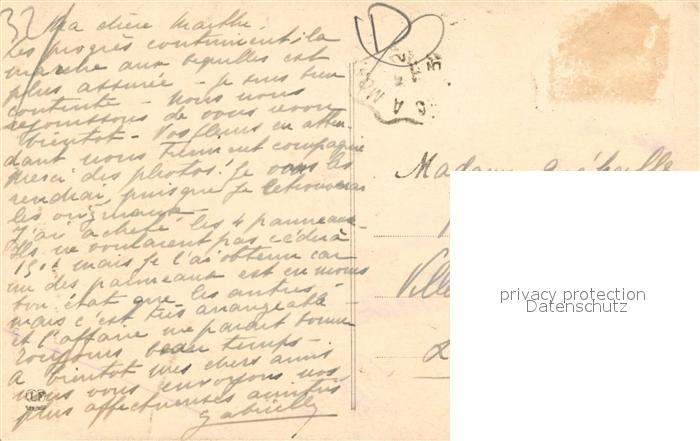 Ma chère Marthe.
Les progrès continuent, la
marche aux béquilles est
plus assurée - Je suis bien
contente - Nous nous
rejouissons de vous revoir
bientot - Vos fleurs en atten
dant nous tiennent compagnie
Merci des photos! Je vous les
rendrai, puisque je retrouverai
les originaux -
J'ai acheté les 4 panneaux -
Ils ne voulaient pas céder à
150. mais je l'ai obtenu car
un des panneaux est en moins
bon état que les autres -
mais c'est très arrangeable -
et l'affaire me parait bonne
Toujours beau temps -
A bientot mes chers amis
nous vous envoyons nos
plus affectueuses amitiés
Gabrielle
Madame
Ville
privacy protection
Datenschutz